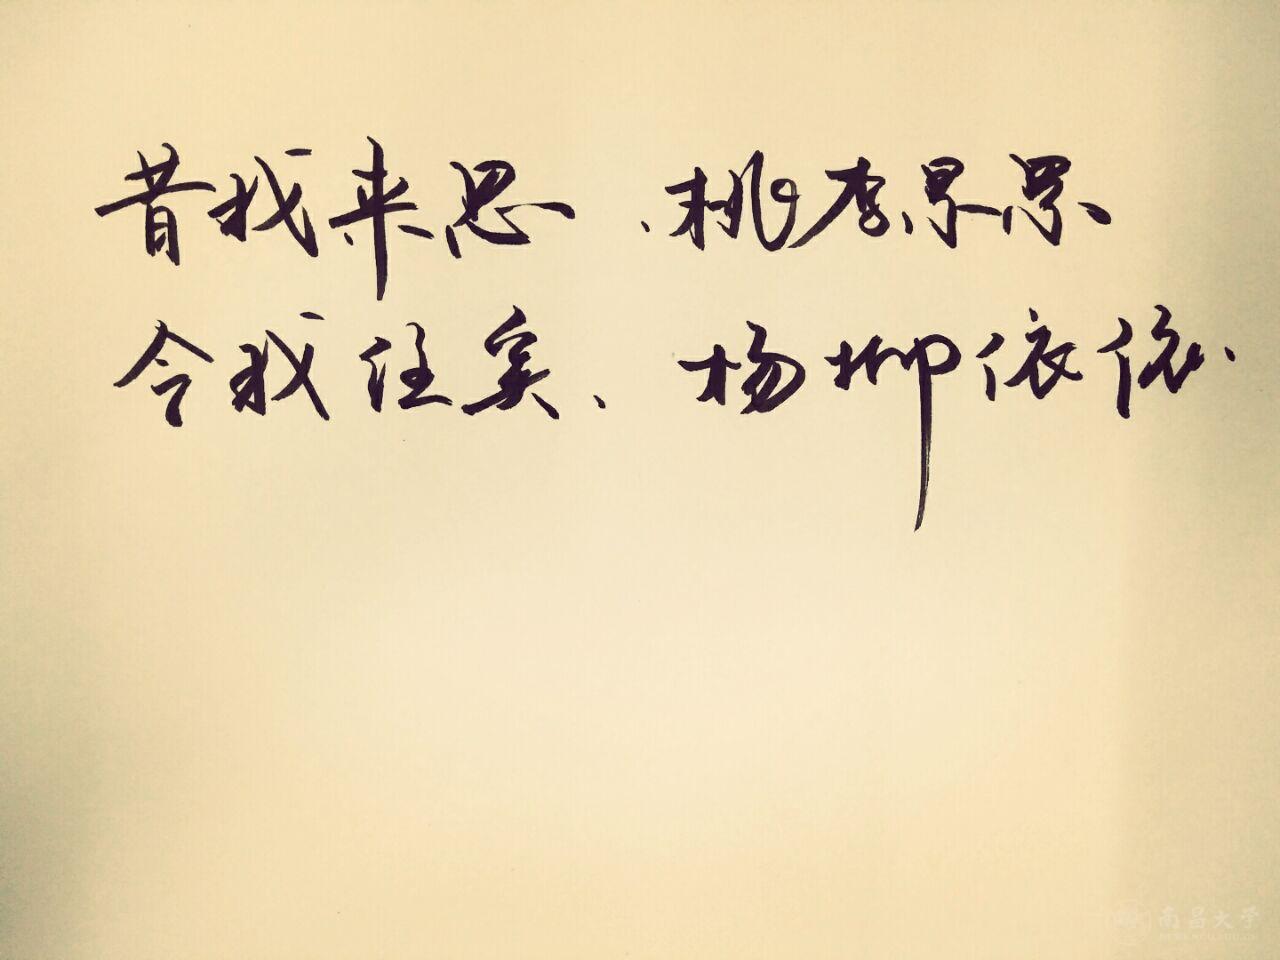 昔我来思、桃李累累
今我往矣、杨柳依依.
南昌大学
NEWS.NCU.EDU.CN